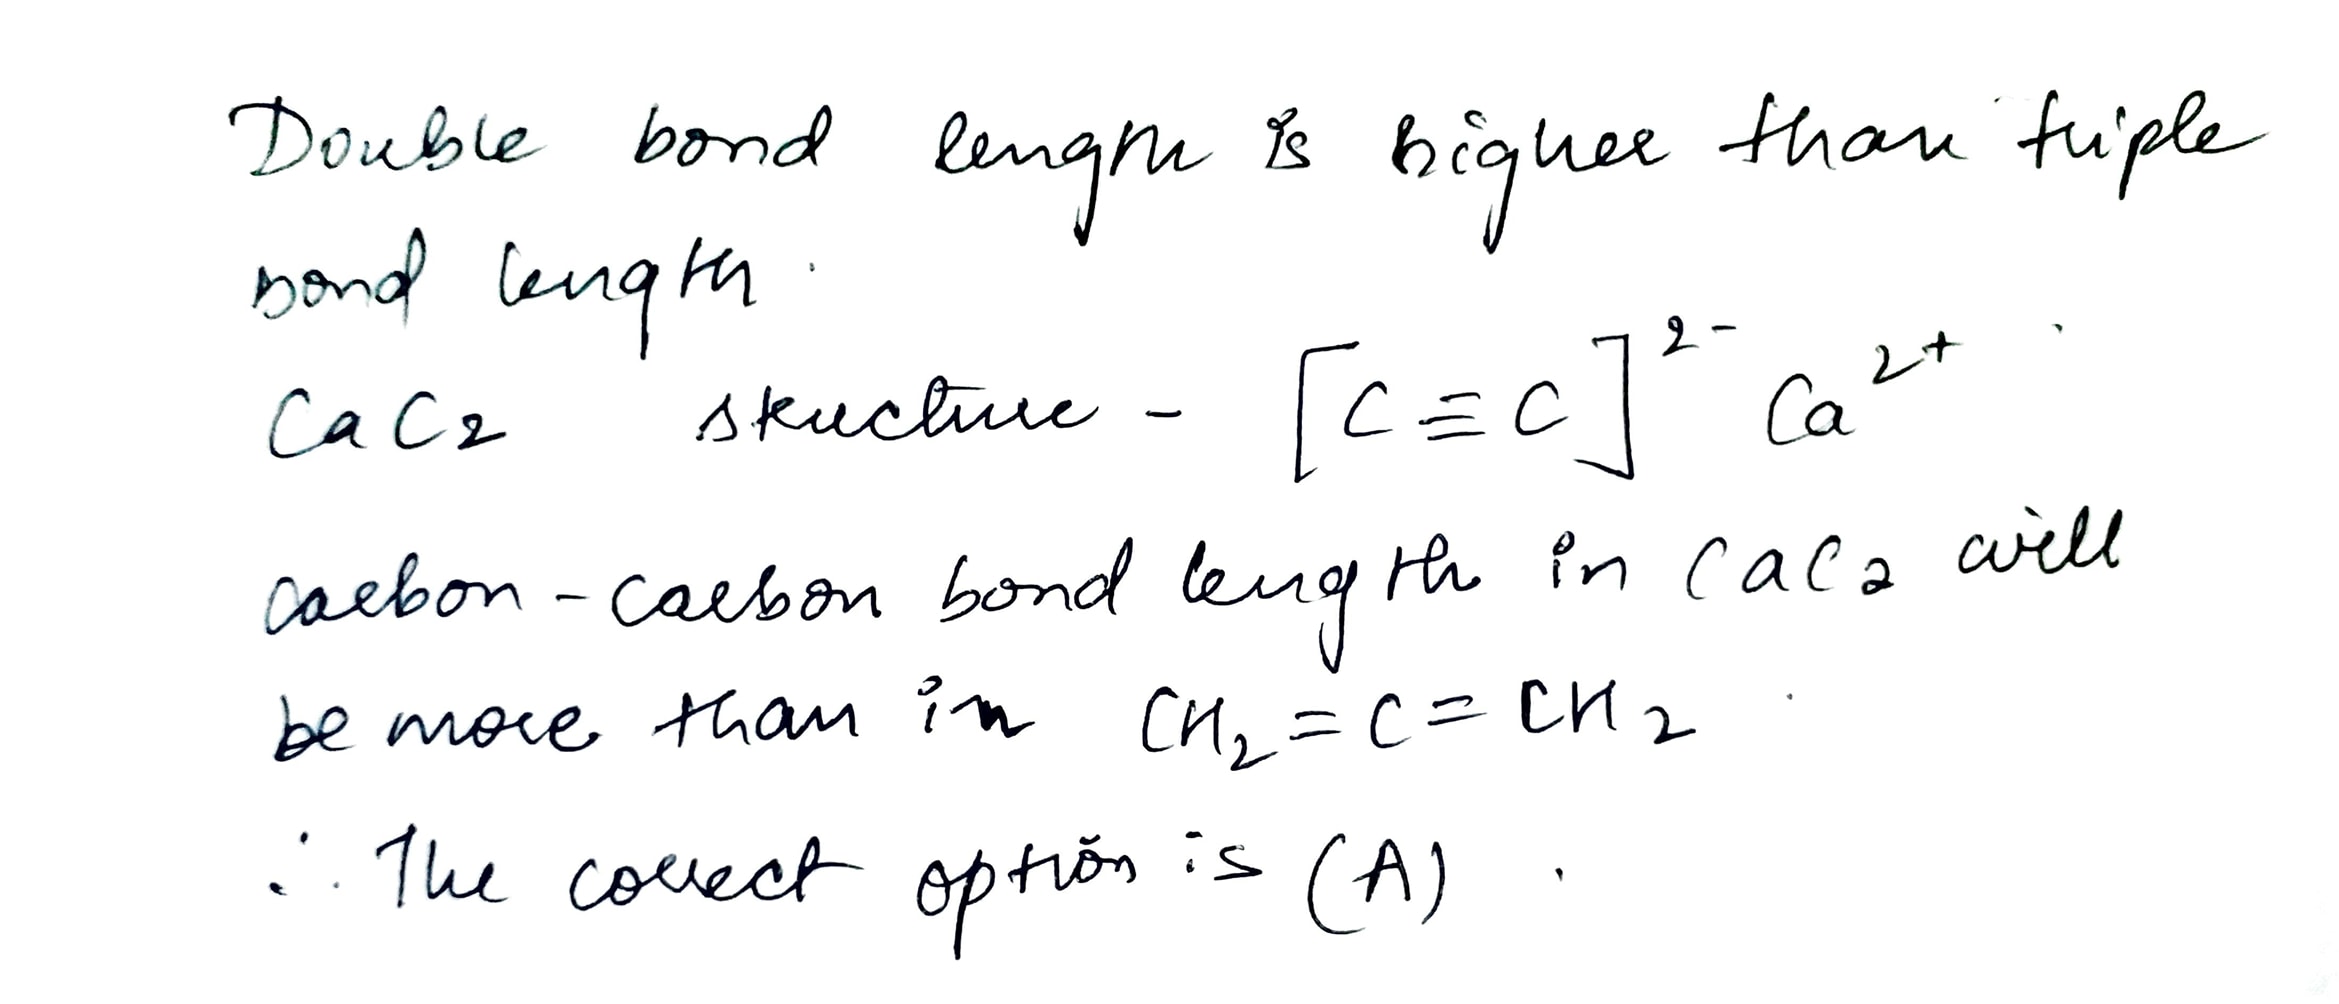 Double bond length is higher than triple
bond length.
CaC2 structure - [C≡C]²⁻ Ca²⁺
carbon-carbon bond length in CaC2 will
be more than in CH₂=C=CH₂.
∴ The correct option is (A).